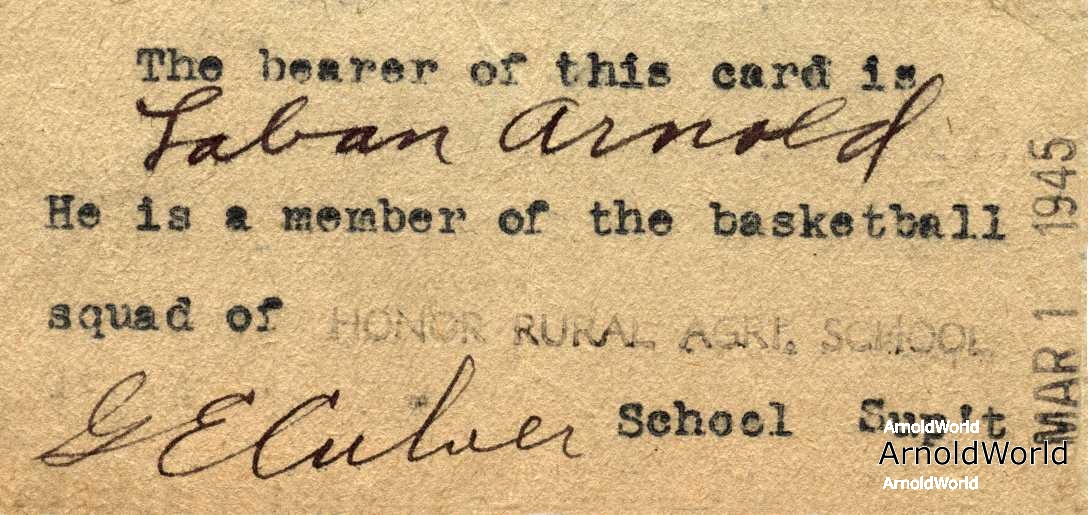 The bearer of this card is
Laban Arnold
He is a member of the basketball
squad of HONOR RURAL AGRI. SCHOOL
G E Culver School Sup't
MAR 1 1945
ArnoldWorld
ArnoldWorld
ArnoldWorld